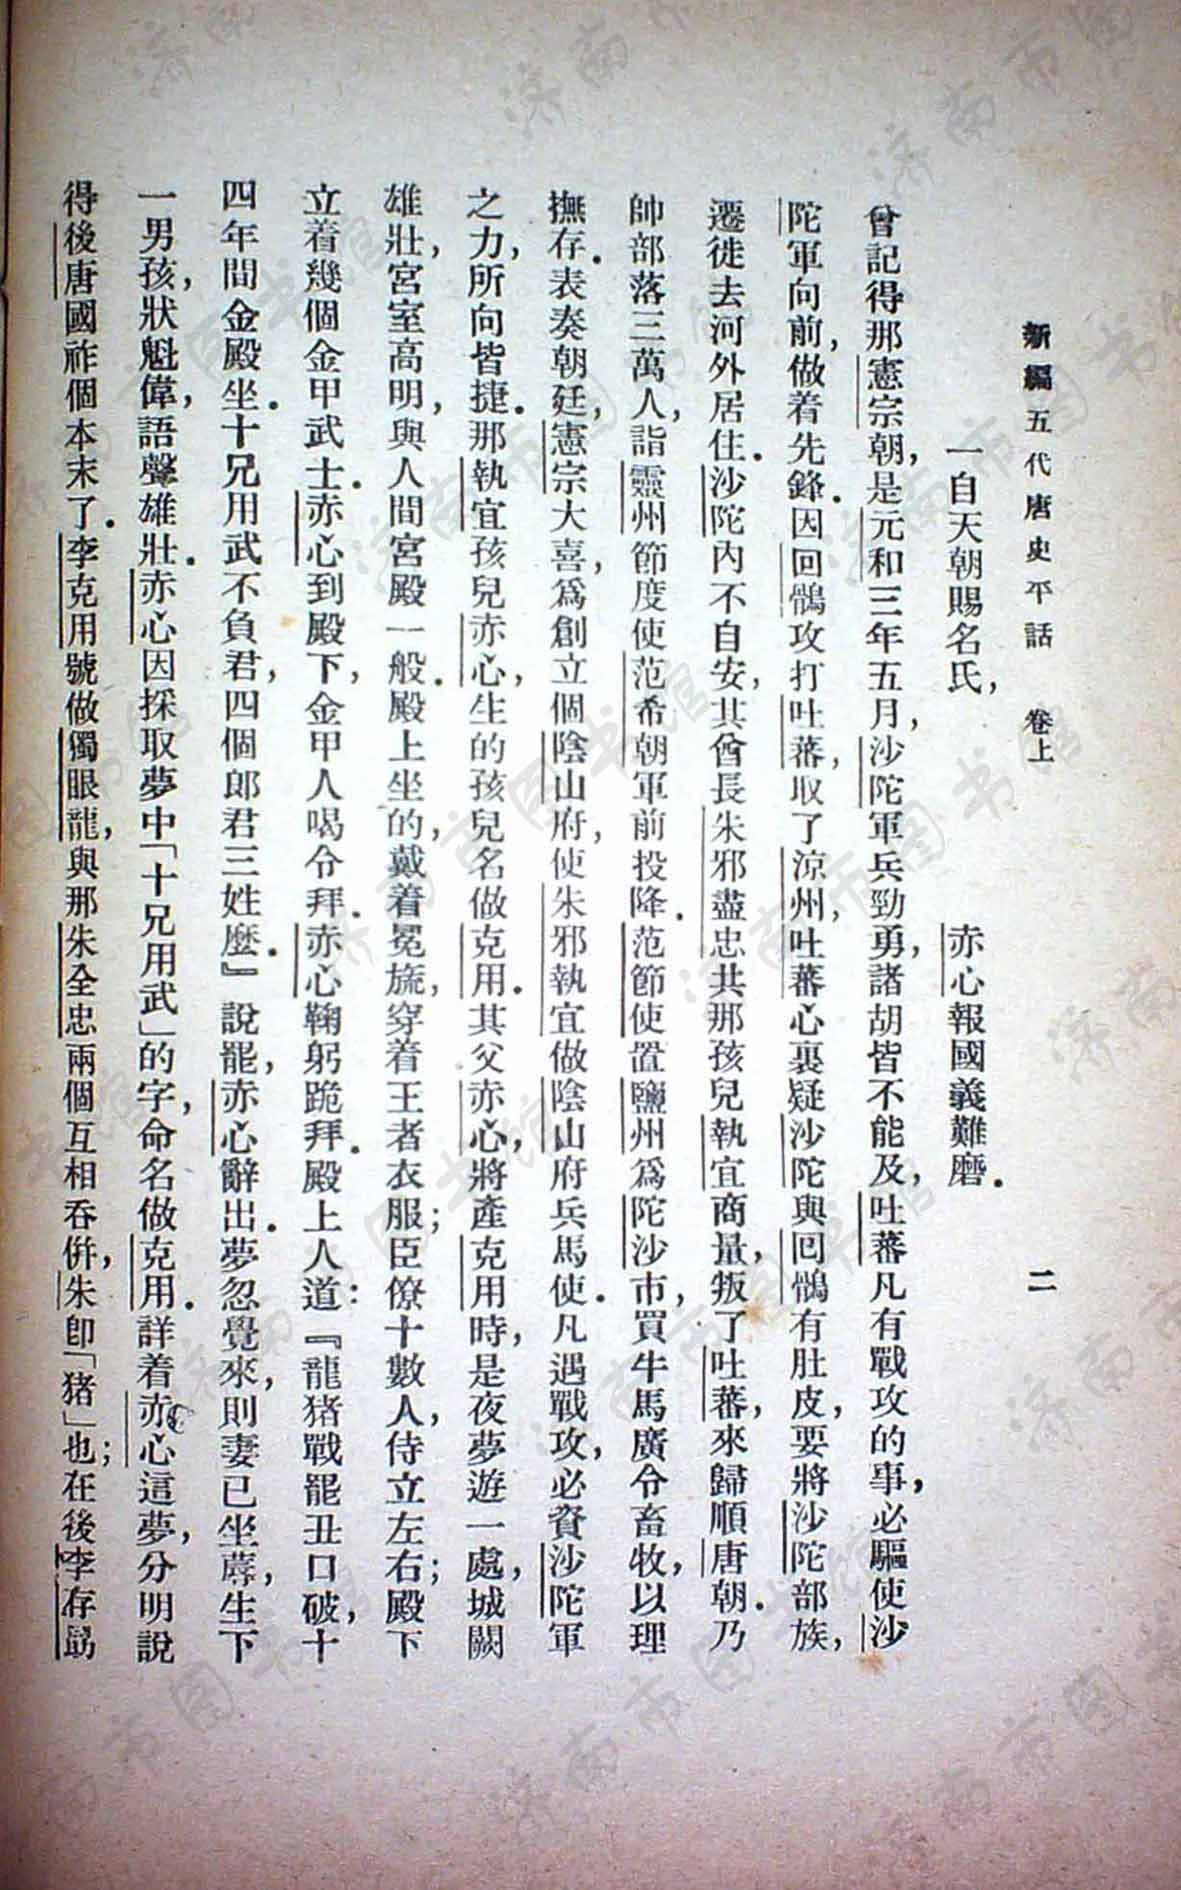 新編五代唐史平話　卷上　二
一自天朝賜名氏，　赤心報國義難磨．
曾記得那憲宗朝，是元和三年五月，沙陀軍兵勁勇，諸胡皆不能及，吐蕃凡有戰攻的事，必驅使沙
陀軍向前，做着先鋒．因回鶻攻打吐蕃，取了涼州，吐蕃心裏疑沙陀與回鶻有肚皮，要將沙陀部族，
遷徙去河外居住．沙陀內不自安，其酋長朱邪盡忠共那孩兒執宜商量，叛了吐蕃，來歸順唐朝．乃
帥部落三萬人，詣靈州節度使范希朝軍前投降．范節使置鹽州爲陀沙市，買牛馬廣令畜牧，以理
撫存．表奏朝廷，憲宗大喜，爲創立個陰山府，使朱邪執宜做陰山府兵馬使．凡遇戰攻，必資沙陀軍
之力，所向皆捷．那執宜孩兒赤心，生的孩兒名做克用．其父赤心，將產克用時，是夜夢遊一處，城闕
雄壯，宮室高明，與人間宮殿一般．殿上坐的，戴着冕旒，穿着王者衣服；臣僚十數人，侍立左右；殿下
立着幾個金甲武士．赤心到殿下，金甲人喝令拜．赤心鞠躬跪拜．殿上人道：『龍猪戰罷丑口破，十
四年間金殿坐．十兄用武不負君，四個郎君三姓麽．』說罷，赤心辭出．夢忽覺來，則妻已坐蓐，生下
一男孩，狀魁偉，語聲雄壯．赤心因採取夢中「十兄用武」的字，命名做克用．詳着赤心這夢，分明說
得後唐國祚個本末了．李克用號做獨眼龍，與那朱全忠兩個互相吞併，朱卽「猪」也；在後李存勗
济南市图书馆